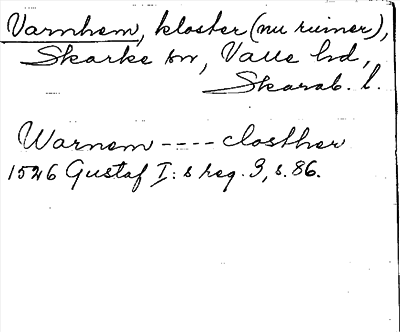 Varnhem, kloster (nu ruiner),
Skarke sn, Valle hd,
Skarab. l.
Warnem ---- closther
1526 Gustaf I:s reg. 3, s. 86.